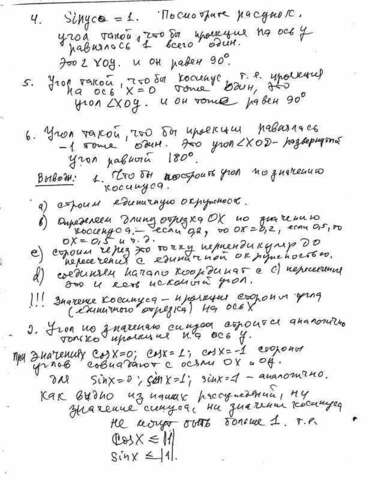 4. Sinусα = 1. Посмотрите рисунок.
Угол такой, что бы проекция на ось y
равнялась 1 всего один.
Это ∠XOY. и он равен 90°.
5. Угол такой, чтобы косинус, т.е. проекция
на ось X=0 тоже один, это
угол ∠XOY. и он тоже равен 90°
6. Угол такой, что бы проекции равнялась
-1 тоже один. Это угол ∠XOD - развернутый
угол равный 180°.
Выводы: 1. Что бы построить угол по значению
косинуса.
a) строим единичную окружность.
b) Определяем длину отрезка OX по значению
косинуса, - если 0,2, то OX=0,2, если 0,5, то
OX=0,5 и т.д.
c) строим через эту точку перпендикуляр до
пересечения с единичной окружностью.
d) соединяем начало координат с c) пересечения
это и есть искомый угол.
!!! Значение косинуса - проекция стороны угла
(единичного отрезка) на ось X
2. Угол по значению синуса строится аналогично
только проекция на ось y.
При значениях CosX=0; CosX=1; CosX=-1 стороны
углов совпадают с осями OX и OY.
Для SinX=0; SinX=1; SinX=-1 - аналогично.
Как видно из наших рассуждений, ни
значение синуса, ни значение косинуса
не могут быть больше 1. т.е.
CosX ≤ |1|
SinX ≤ |1|.